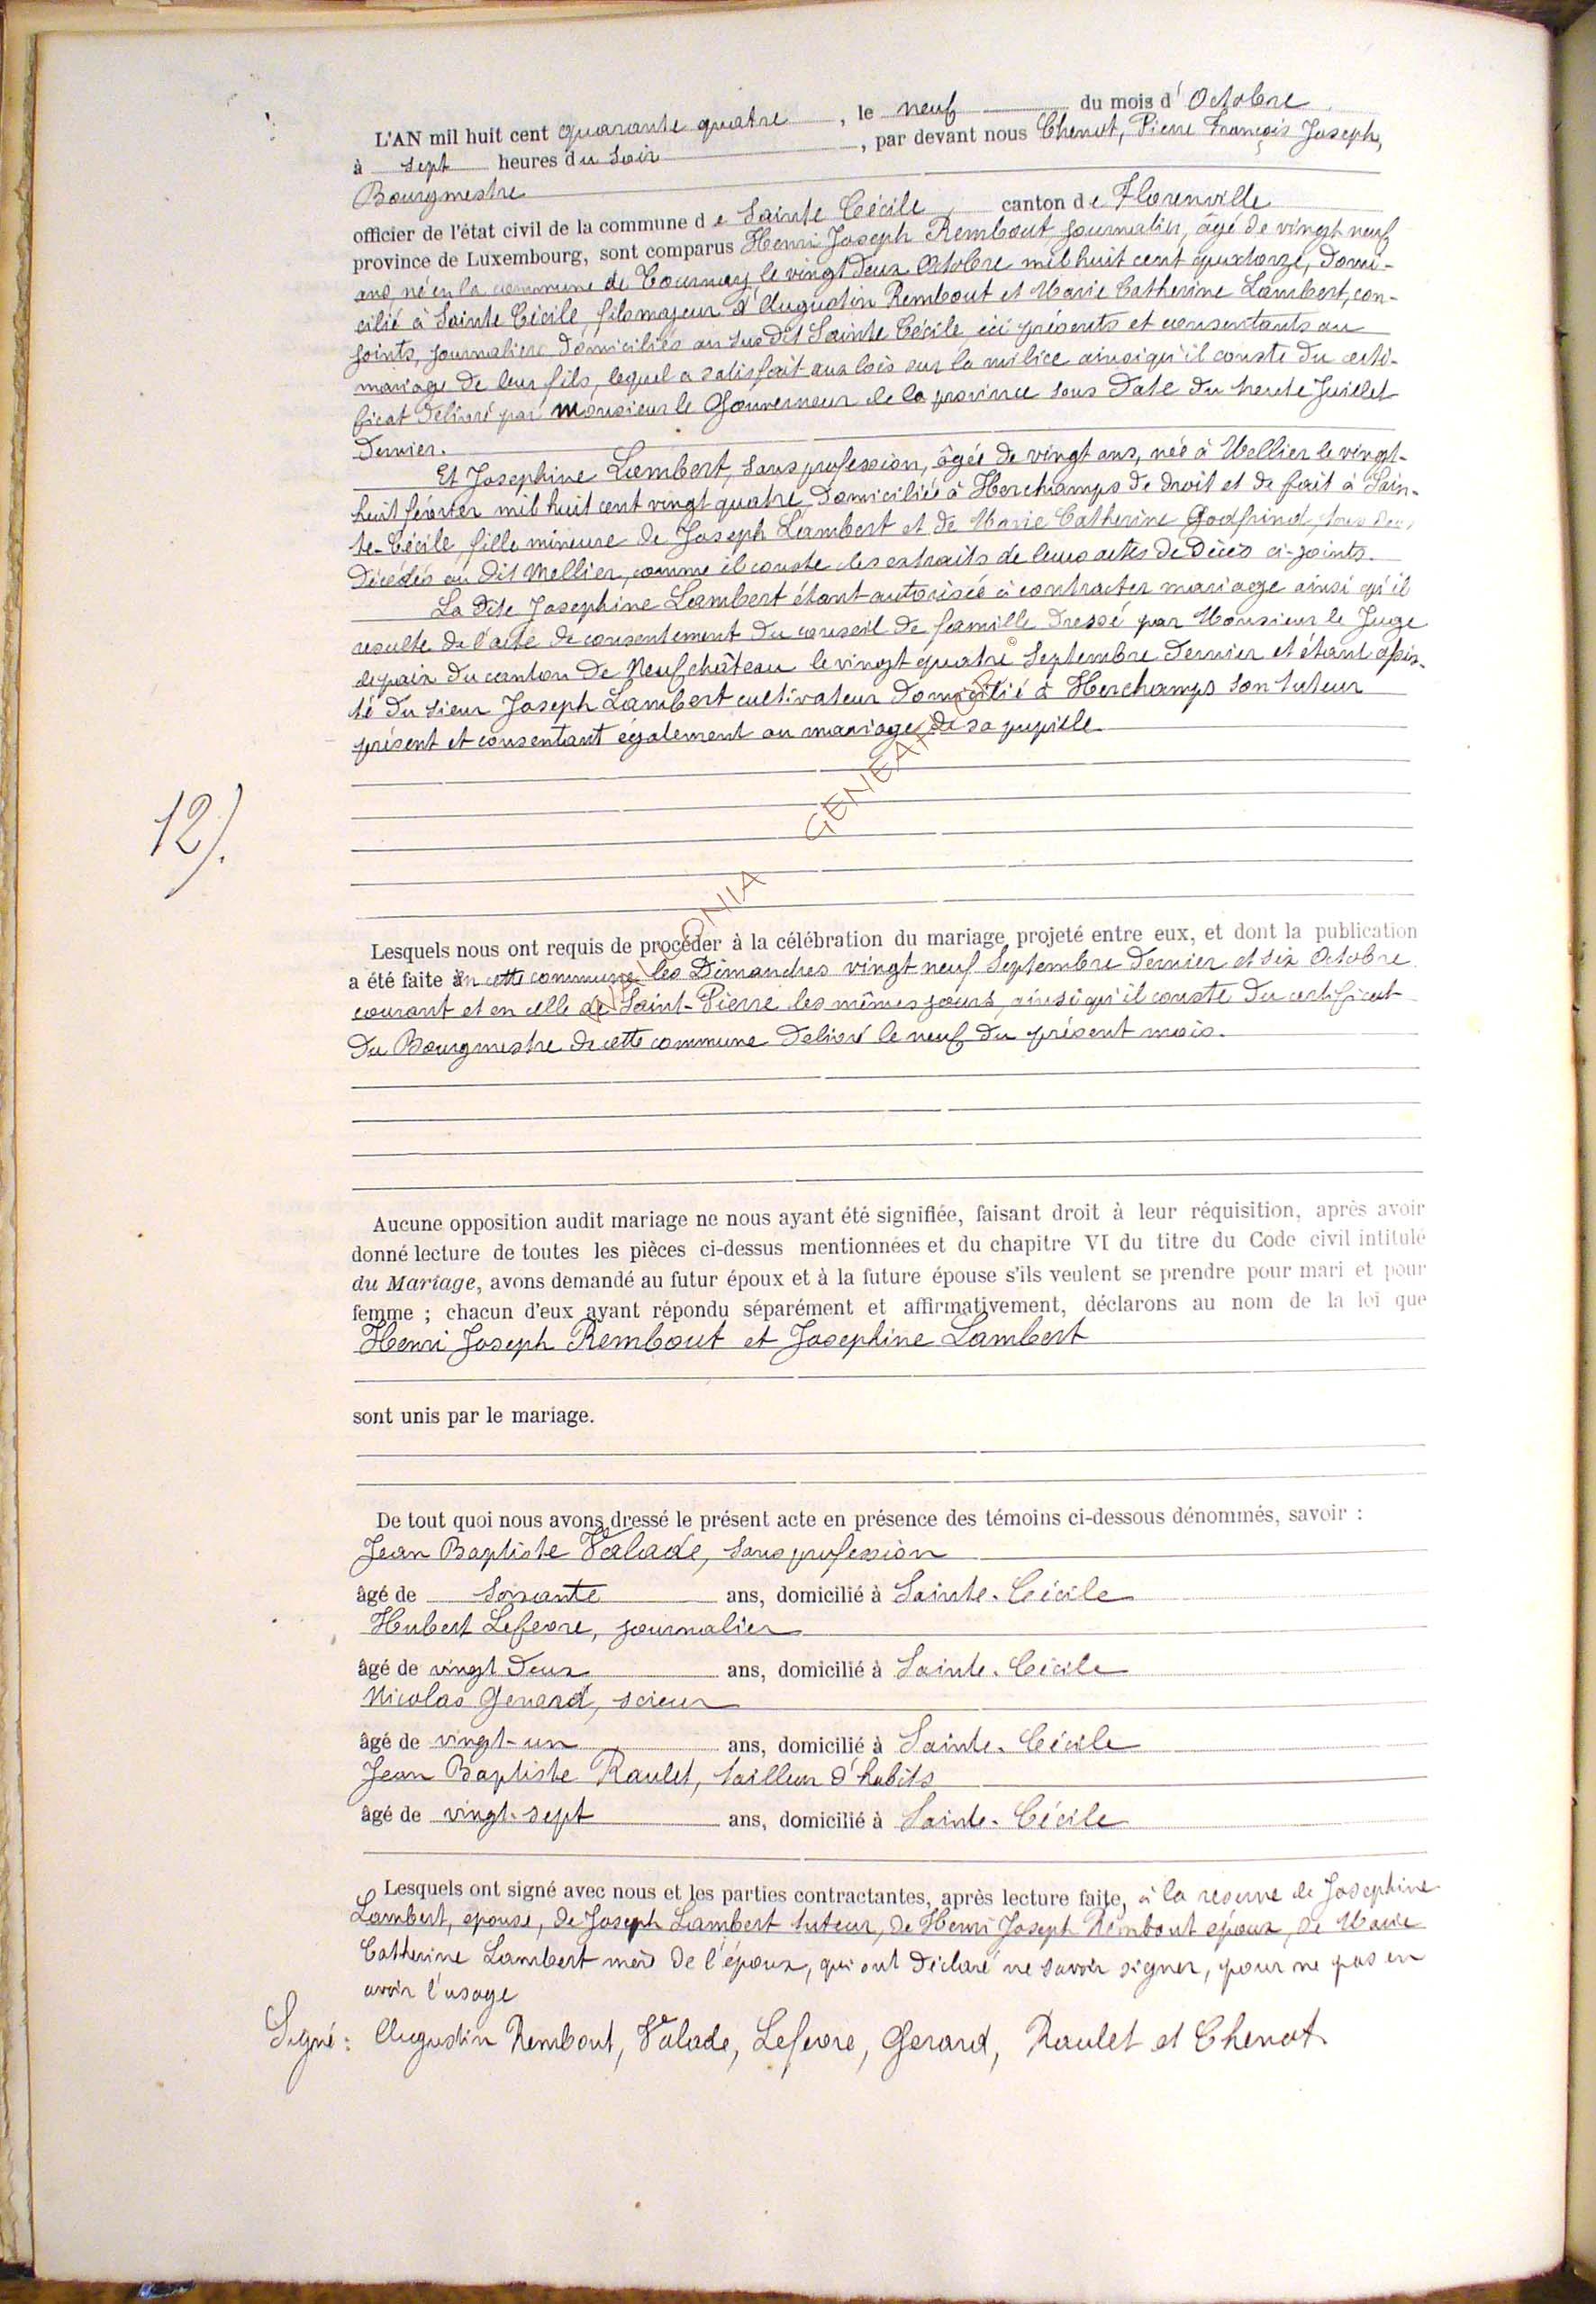 L'AN mil huit cent quarante quatre, le neuf du mois d'Octobre
à sept heures du soir, par devant nous Chenot, Pierre François Joseph,
Bourgmestre
officier de l'état civil de la commune de Sainte Cécile, canton de Florenville
province de Luxembourg, sont comparus Henri Joseph Rembout, journalier, âgé de vingt neuf
ans, né en la commune de Tournay le vingt deux Octobre mil huit cent quatorze, domi-
cilié à Sainte Cécile, fils majeur d'Augustin Rembout et Marie Catherine Lambert, con-
joints, journaliers domiciliés au susdit Sainte Cécile, ici présents et consentants au
mariage de leur fils, lequel a satisfait aux lois sur la milice ainsi qu'il conste du certi-
ficat délivré par Monsieur le Gouverneur de la province sous date du trente Juillet
dernier.
Et Josephine Lambert, sans profession, âgée de vingt ans, née à Mellier le vingt-
huit février mil huit cent vingt quatre, domiciliée à Herchamps de droit et de fait à Sain-
te-Cécile, fille mineure de Joseph Lambert et de Marie Catherine Godfrind, tous deux
décédés au dit Mellier, comme il conste des extraits de leurs actes de Décès ci-joints.
La dite Josephine Lambert étant autorisée à contracter mariage ainsi qu'il
resulte de l'acte de consentement du conseil de famille dressé par Monsieur le Juge
de paix du canton de Neufchâteau le vingt quatre Septembre dernier et étant assis-
té du sieur Joseph Lambert cultivateur domicilié à Herchamps son tuteur
présent et consentant également au mariage de sa pupille
12).
Lesquels nous ont requis de procéder à la célébration du mariage projeté entre eux, et dont la publication
a été faite en cette commune les Dimanches vingt neuf Septembre dernier et six Octobre
courant et en celle de Saint-Pierre les mêmes jours, ainsi qu'il conste du certificat
du Bourgmestre de cette commune délivré le neuf du présent mois.
Aucune opposition audit mariage ne nous ayant été signifiée, faisant droit à leur réquisition, après avoir
donné lecture de toutes les pièces ci-dessus mentionnées et du chapitre VI du titre du Code civil intitulé
du Mariage, avons demandé au futur époux et à la future épouse s'ils veulent se prendre pour mari et pour
femme ; chacun d'eux ayant répondu séparément et affirmativement, déclarons au nom de la loi que
Henri Joseph Rembout et Josephine Lambert
sont unis par le mariage.
De tout quoi nous avons dressé le présent acte en présence des témoins ci-dessous dénommés, savoir :
Jean Baptiste Valade, sans profession
âgé de soixante ans, domicilié à Sainte-Cécile
Hubert Lefevre, journalier
âgé de vingt deux ans, domicilié à Sainte-Cécile
Nicolas Gerard, scieur
âgé de vingt-un ans, domicilié à Sainte-Cécile
Jean Baptiste Raulet, tailleur d'habits
âgé de vingt-sept ans, domicilié à Sainte-Cécile
Lesquels ont signé avec nous et les parties contractantes, après lecture faite, à la reserve de Josephine
Lambert, epouse, de Joseph Lambert tuteur, de Henri Joseph Rembout epoux, de Marie
Catherine Lambert mère de l'époux, qui ont déclaré ne savoir signer, pour ne pas en
avoir l'usage
Signé : Augustin Rembout, Valade, Lefevre, Gerard, Raulet et Chenot.